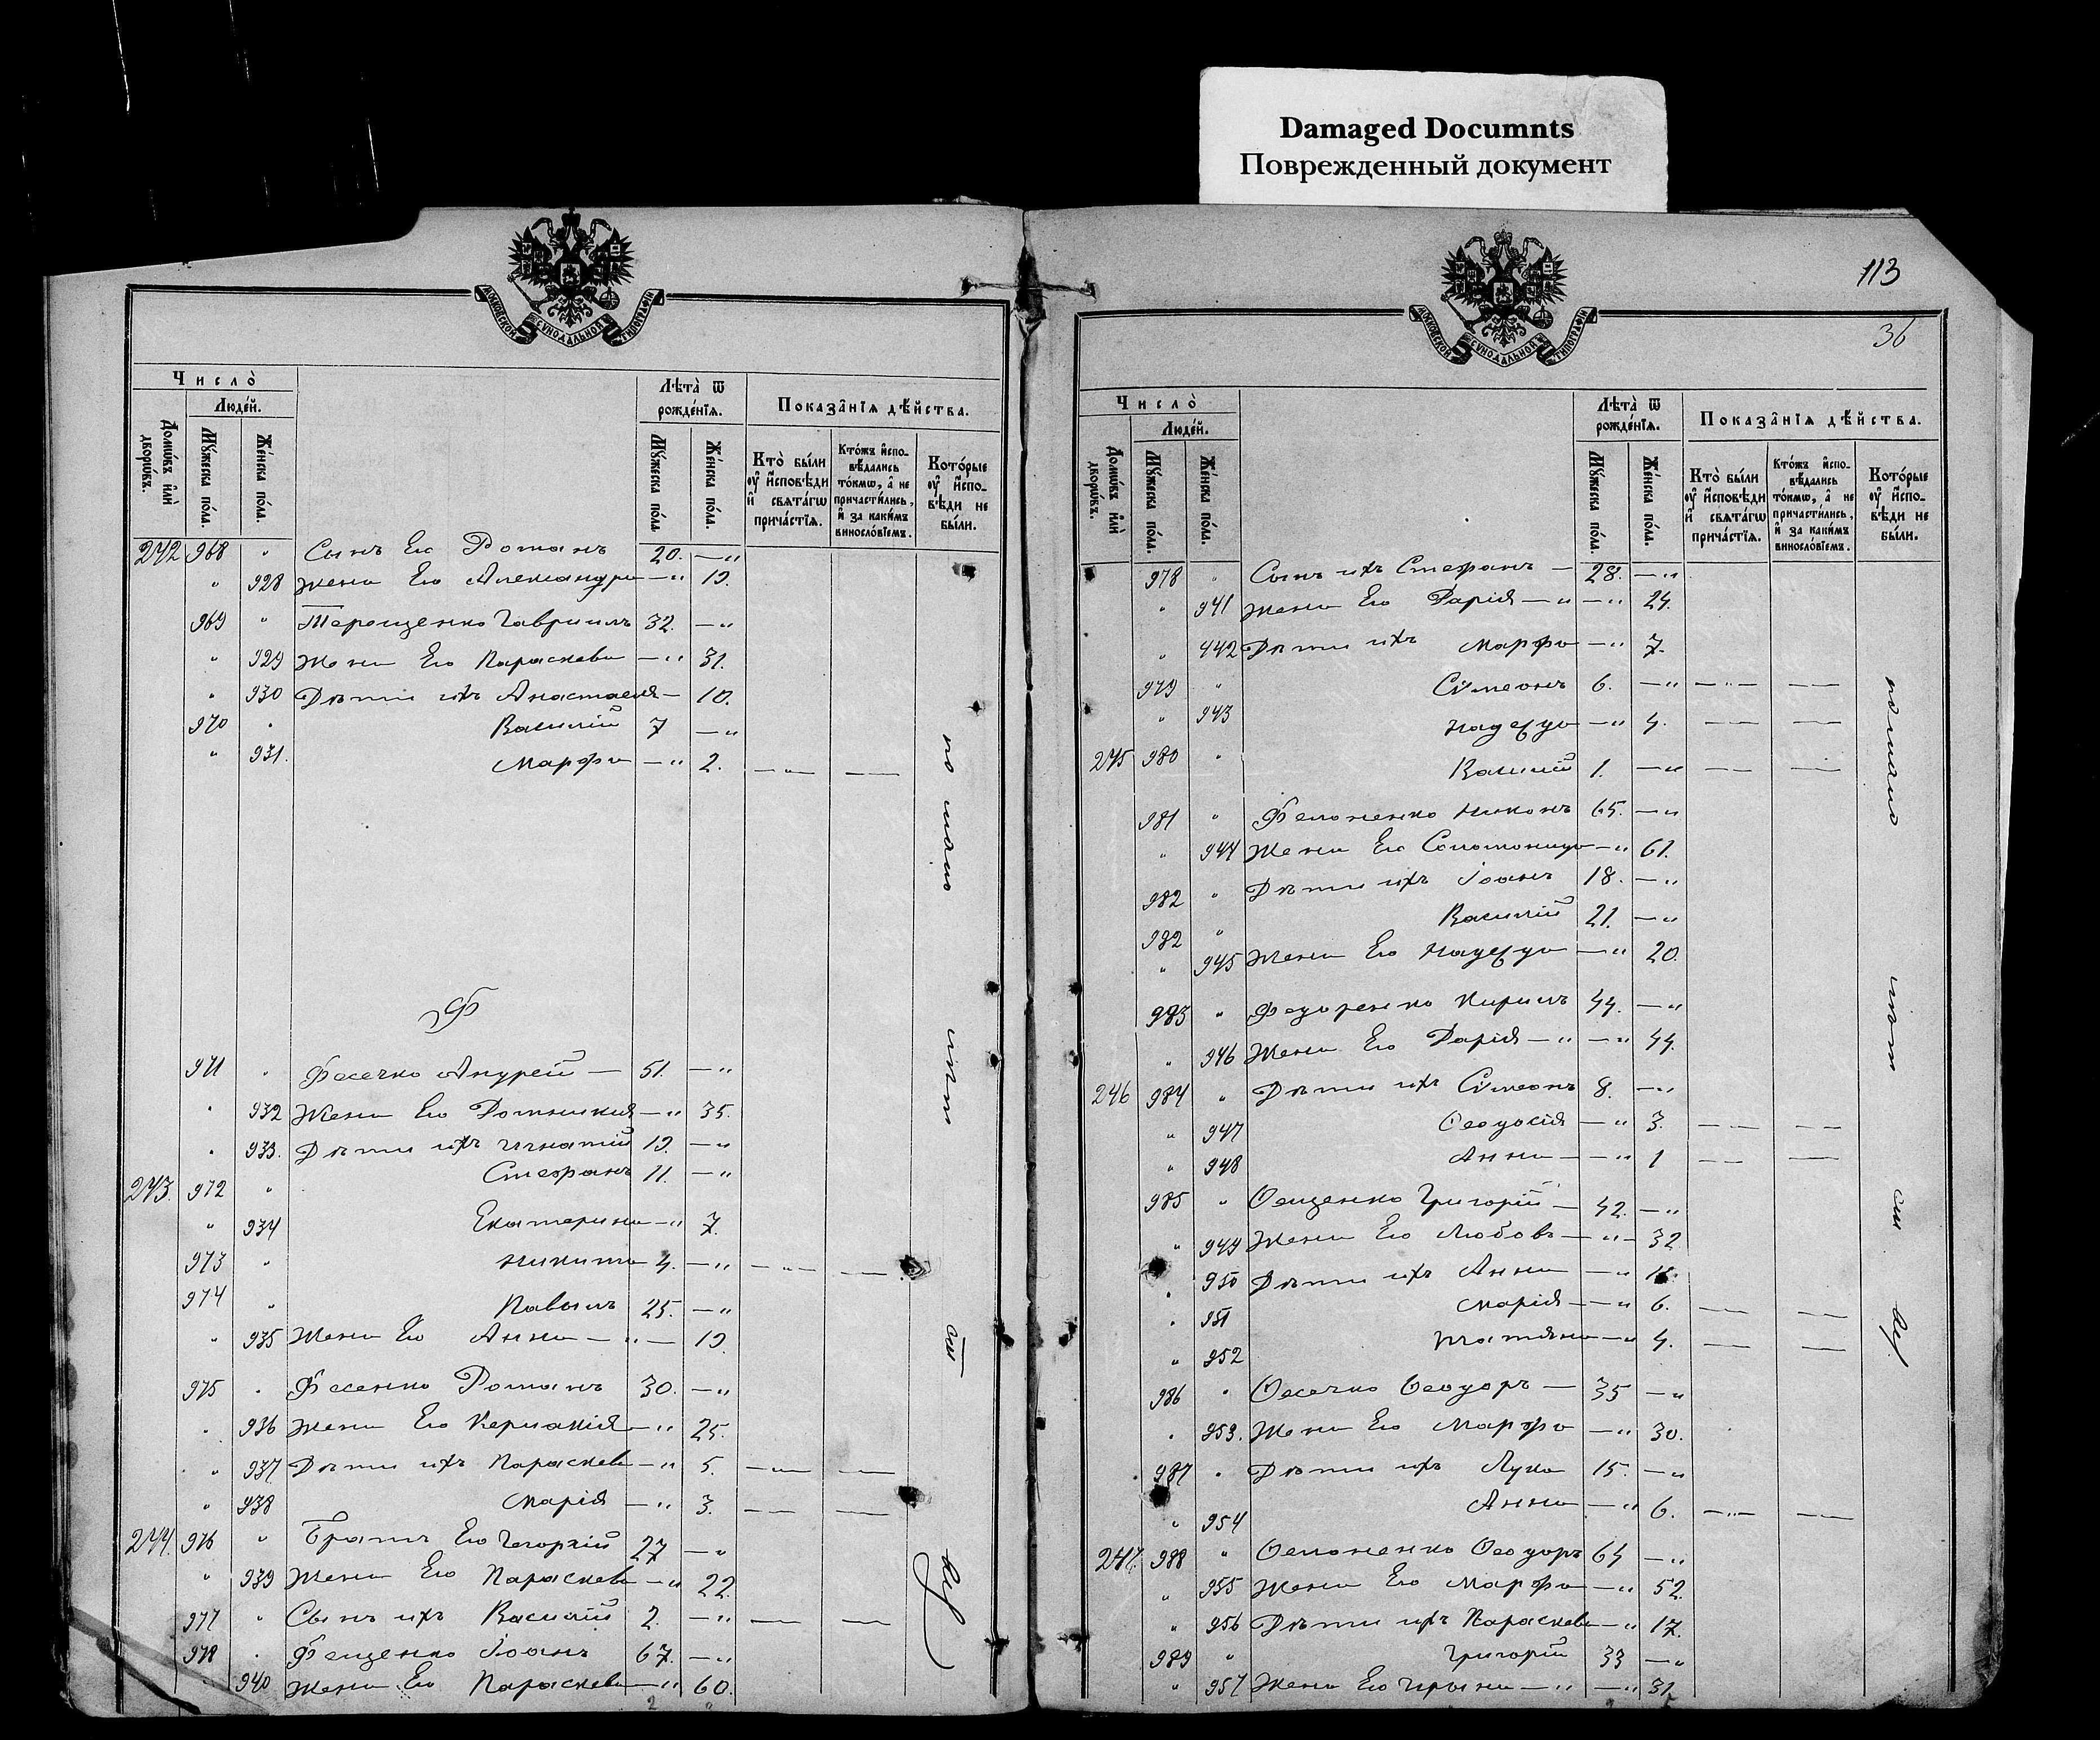 Damaged Documnts
Поврежденный документ
МОСКОВСКОЙ СѴНОДАЛЬНОЙ ТИПОГРАФІИ
Число̀
Люде́й.
Домѡ́въ и҆лѝ дворѡ́въ.
Мꙋ́жеска по́ла.
Же́нска по́ла.
Лѣ́та ѿ рожде́нїѧ.
Мꙋ́жеска по́ла.
Же́нска по́ла.
Показа̑нїѧ дѣ́йства.
Кто̀ бы́ли оу҆ и҆сповѣ́ди и҆ свѧта́гѡ прича́стїѧ.
Кто́жъ и҆сповѣ́дались то́кмѡ, а҆ не причасти́лись, и҆ за каки́мъ винослѡ́вїемъ.
Кото́рые оу҆ и҆сповѣ́ди не бы́ли.
242 968 " Сынъ Его Романъ 20. — "
" 928 Жена Его Александра — " 19.
969 " Терещенко Гавриилъ 32. — "
" 929 Жена Его Параскева — " 31.
" 930 Дѣти ихъ Анастасія — 10.
970 " Василій 7 — "
" 931. Марфа — " 2. — " — —
Ф
971 " Фесечко Андрей — 51. — "
" 932 Жена Его Домникия — " 35.
" 933. Дѣти ихъ Игнатій 19. — "
243. 972 " Стефанъ 11. — "
" 934 Екатерина — " 7.
973 " Никита 4. — " — " — —
974 " Павелъ 25. — "
" 935 Жена Его Анна — " — 19.
975 " Фесенко Романъ 30. — "
" 936 Жена Его Кириакія — " 25.
" 937 Дѣти ихъ Параскева — " 5. — " — —
" 938 Марія — " 3. — —
244. 976 " Братъ Его Георгій 27 — "
" 939 Жена Его Параскева — " 22.
977 " Сынъ ихъ Василій 2. — " — —
978 " Фещенко Іоанъ 67. — "
940 Жена Его Параскева — " 60.
113
36
МОСКОВСКОЙ СѴНОДАЛЬНОЙ ТИПОГРАФІИ
Число̀
Люде́й.
Домѡ́въ и҆лѝ дворѡ́въ.
Мꙋ́жеска по́ла.
Же́нска по́ла.
Лѣ́та ѿ рожде́нїѧ.
Мꙋ́жеска по́ла.
Же́нска по́ла.
Показа̑нїѧ дѣ́йства.
Кто̀ бы́ли оу҆ и҆сповѣ́ди и҆ свѧта́гѡ прича́стїѧ.
Кто́жъ и҆сповѣ́дались то́кмѡ, а҆ не причасти́лись, и҆ за каки́мъ винослѡ́вїемъ.
Кото́рые оу҆ и҆сповѣ́ди не бы́ли.
978 " Сынъ ихъ Стефанъ — 28. — "
" 941 Жена Его Дарія — " — " 24.
" 442 Дѣти ихъ Марфа — " 7.
979 " Сѵмеонъ 6. — " — " — —
" 943 Надежда — " 4. — —
245 980 " Василій 1. — " — —
981 " Фелоненко Никонъ 65. — "
" 944 Жена Его Соломонида — " 61.
982 " Дѣти ихъ Іоанъ 18. — "
982 " Василій 21. — "
" 945 Жена Его Надежда — " 20.
983 " Федоренко Кирилъ 44. — "
" 946 Жена Его Дарія — " — " 44.
246 984 " Дѣти ихъ Сѵмеонъ 8. — "
" 947 Ѳеодосія — " 3. — " — —
" 948 Анна — — " 1 — —
985 " Ѳещенко Григорій — 42. — "
" 949 Жена Его Любовь — " — 32
" 950 Дѣти ихъ Анна — "
" 951 Марія — — " 6. — —
" 952 Татіана — " 4. — —
986 " Ѳесечко Ѳеодоръ — 35 — "
" 953. Жена Его Марфа — " 30.
987 " Дѣти ихъ Лука 15. — "
" 954 Анна — " 6. — " — —
247. 988 " Ѳелоненко Ѳеодоръ 64 — "
" 955 Жена Его Марфа — " 52.
" 956 Дѣти ихъ Параскева — " 17.
989 " Григорій 33 — "
" 957 Жена Его Ирина — " — " 31.